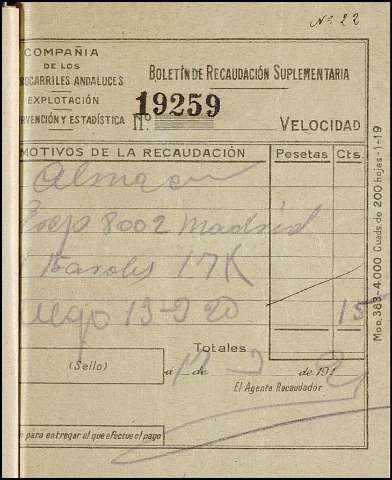 Nº 22
COMPAÑIA
DE LOS
ROCARRILES ANDALUCES
EXPLOTACIÓN
RVENCIÓN Y ESTADÍSTICA
BOLETÍN DE RECAUDACIÓN SUPLEMENTARIA
Nº 19259
VELOCIDAD
MOTIVOS DE LA RECAUDACIÓN
Pesetas Cts.
Almacen
8002 Madrid
17K
15
Totales
(Sello)
á de de 192
El Agente Recaudador
para entregar al que efectúe el pago
Mod. 383-4.000 Cuads. de 200 hojas-1-19